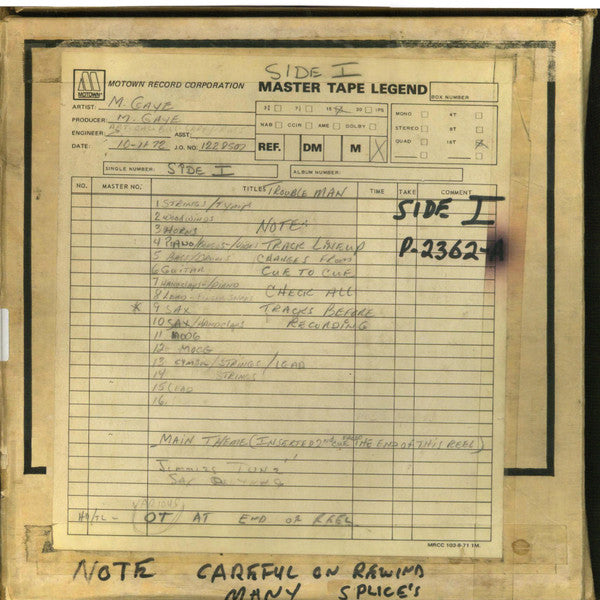 SIDE I
MOTOWN RECORD CORPORATION MASTER TAPE LEGEND
MOTOWN
BOX NUMBER
ARTIST: M. GAYE
PRODUCER: M. GAYE
ENGINEER: ASST.
DATE: J.O. NO.
3¾ 7½ 15 30 IPS
NAB CCIR AME DOLBY
REF. DM M X
MONO 4T
STEREO 8T
QUAD 16T
SINGLE NUMBER: SIDE I ALBUM NUMBER:
NO. MASTER NO. TITLES TROUBLE MAN TIME TAKE COMMENT
SIDE I
P-2362-A
1 STRINGS/TYMP
2 WOODWINDS
3 HORNS
4 PIANO
5 BASS/DRUMS
6 GUITAR
7 HANDCLAPS/PIANO
8 LEAD-FINGER SNAPS
* 9 SAX
10 SAX/HANDCLAPS
11 MOOG
12 MOOG
13 CYMBOL/STRINGS/LEAD
14 STRINGS
15 LEAD
16.
NOTE:
TRACK LINEUP
CHANGES FROM
CUE TO CUE
CHECK ALL
TRACKS BEFORE
RECORDING
MAIN THEME (INSERTED 2nd CUE FROM THE END OF THIS REEL)
VARIOUS
OT AT END OF REEL
MRCC 103-8-71 1M.
NOTE CAREFUL ON REWIND
MANY SPLICE'S